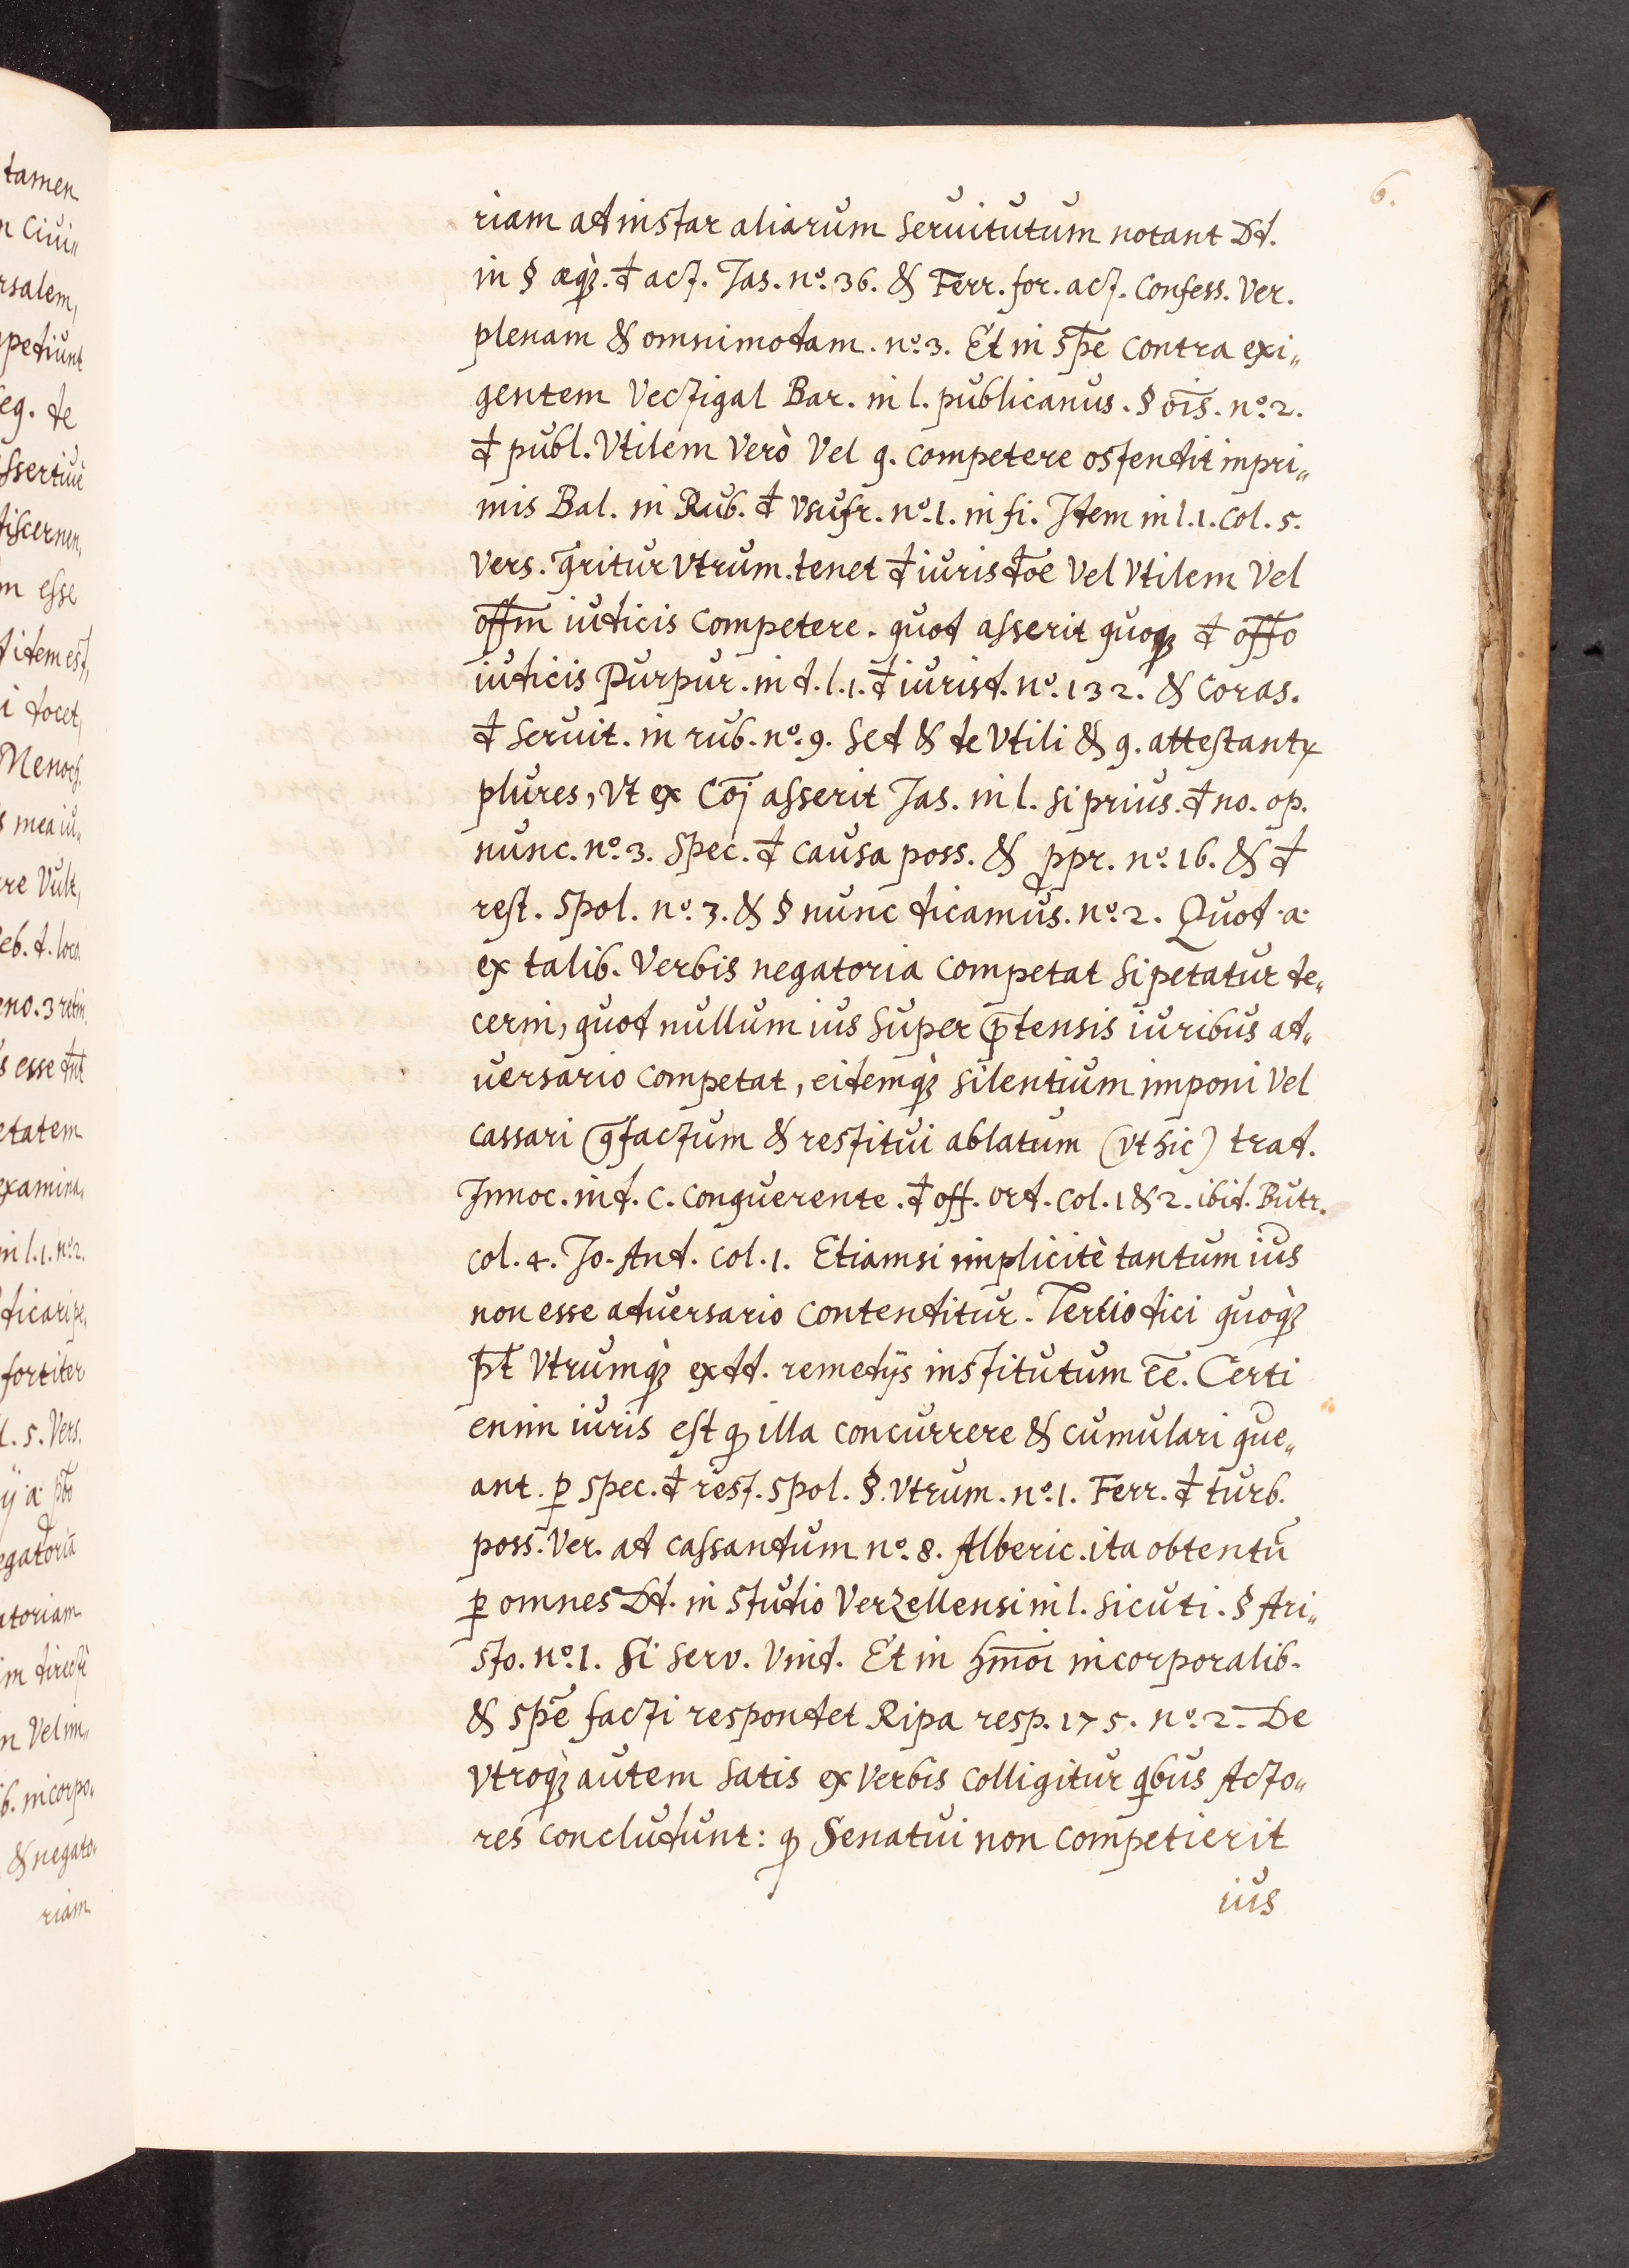 6.
tamen
n Ciui„
rsalem,
petiunt
eg. de
ssertiuè
discernen,
m esse
d idem est,
i docet,
Menoch.
s mea iu„
re Vult,
eb. d. loco.
s esse dnt
etatem
examina„
in l. 1. nº. 2.
dicari pe„
fortiter
l. 5. Vers.
egatoriā
atoriam
im directè
n Vel im„
b. incorpo„
& negato„
riam
riam ad instar aliarum seruitutum notant Dd.
in § æqȝ. đ act. Jas. nº. 36. & Ferr. for. act. Confess. Ver.
plenam & omnimodam. nº. 3. Et in spē contra exi„
gentem Vectigal Bar. in l. publicanus. § oīs. nº. 2.
đ publ. Vtilem Verò Vel 9. competere ostendit inpri„
mis Bal. in Rub. đ Vsufr. nº. 1. in fi. Item in l. 1. Col. 5.
Vers. q̄ritur Vtrum. tenet đ iurisdōe Vel Vtilem Vel
offm̄ iudicis Competere. quod asserit quoqȝ đ offō
iudicis Purpur. in d. l. 1. đ iurisd. nº. 132. & Coras.
đ seruit. in rub. nº. 9. Sed & de Vtili & 9. attestantr
plures, Vt ex Cōj asserit Jas. in l. si prius. đ no. op.
nunc. nº. 3. Spec. đ causa poss. & ꝓpr. nº. 16. & đ
rest. Spol. nº. 3. & § nunc dicamus. nº. 2. Quod ·a·
ex talib. Verbis negatoria competat si petatur de„
cerni, quod nullum ius super p̄tensis iuribus ad„
uersario competat, eidemqȝ silentium imponi Vel
cassari q̄factum & restitui ablatum (vt hic) trad.
Innoc. in d. C. Conquerente. đ off. ord. Col. 1 & 2. ibid. Butr.
Col. 4. Jo. And. Col. 1. Etiamsi implicitè tantum ius
non esse aduersario contenditur. Tertio dici quoqȝ
pt̄ Vtrumqȝ ex dd. remedijs institutum ēē. Certi
enim iuris est ꝙ illa concurrere & cumulari que„
ant. ꝑ spec. đ rest. spol. §. Vtrum. nº. 1. Ferr. đ turb.
poss. Ver. ad cassandum nº. 8. Alberic. ita obtentū
ꝑ omnes Dd. in studio Verzellensi in l. sicuti. § Ari„
sto. nº. 1. Si Serv. Vind. Et in hm̄oi incorporalib.
& spē facti respondet Ripa resp. 175. nº. 2. De
Vtroqȝ autem satis ex Verbis colligitur qbus Acto„
res concludunt: ꝙ Senatui non competierit
ius